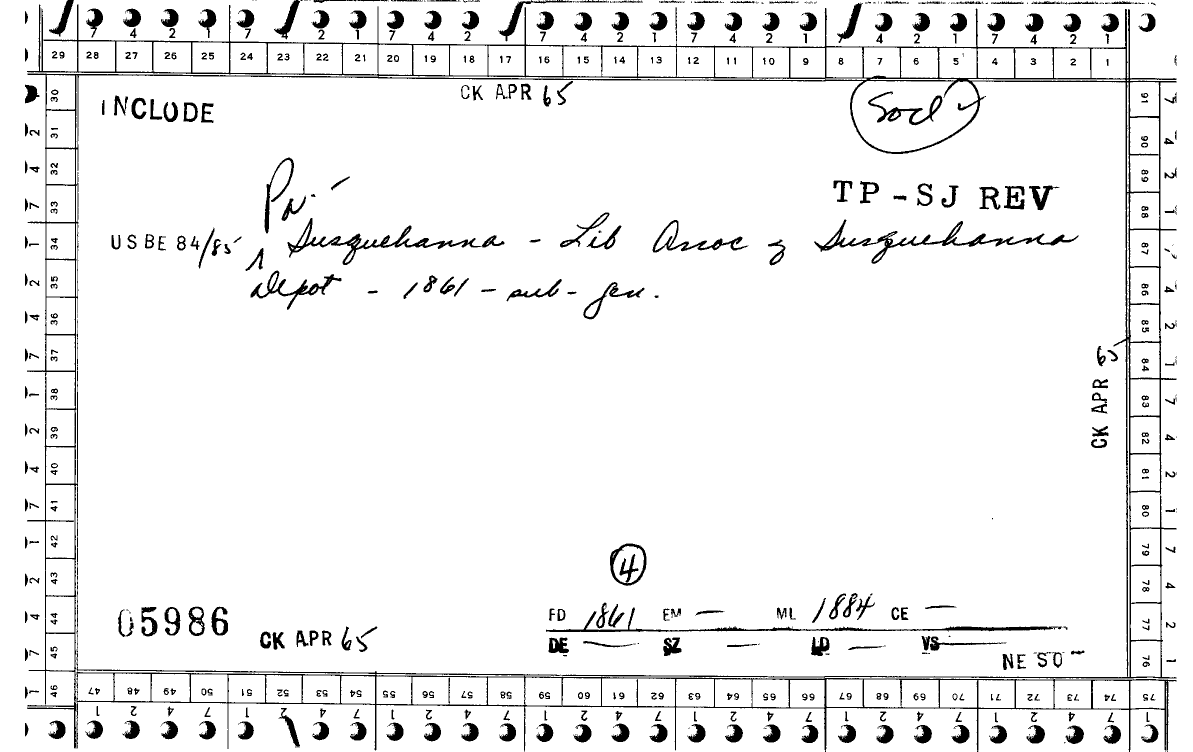 7 4 2 1 7 4 2 1 7 4 2 1 7 4 2 1 7 4 2 1 7 4 2 1 7 4 2 1
29 28 27 26 25 24 23 22 21 20 19 18 17 16 15 14 13 12 11 10 9 8 7 6 5 4 3 2 1
CK APR 65
INCLUDE
Socl
TP-SJ REV
Pa.-
USBE 84/85 Susquehanna - Lib Assoc of Susquehanna
Depot - 1861 - sub - gen.
CK APR 65
4
05986
CK APR 65
FD 1861 EM — ML 1884 CE —
DE — SZ — LD — VS —
NE SO -
30 31 32 33 34 35 36 37 38 39 40 41 42 43 44 45 46
2 4 7 1 2 4 7 1 2 4 7 1 2 4 7 1
91 90 89 88 87 86 85 84 83 82 81 80 79 78 77 76
7 4 2 1 4 2 1 7 4 2 1 7 4 2 1
47 48 49 50 51 52 53 54 55 56 57 58 59 60 61 62 63 64 65 66 67 68 69 70 71 72 73 74 75
1 2 4 7 1 2 4 7 1 2 4 7 1 2 4 7 1 2 4 7 1 2 4 7 1 2 4 7 1